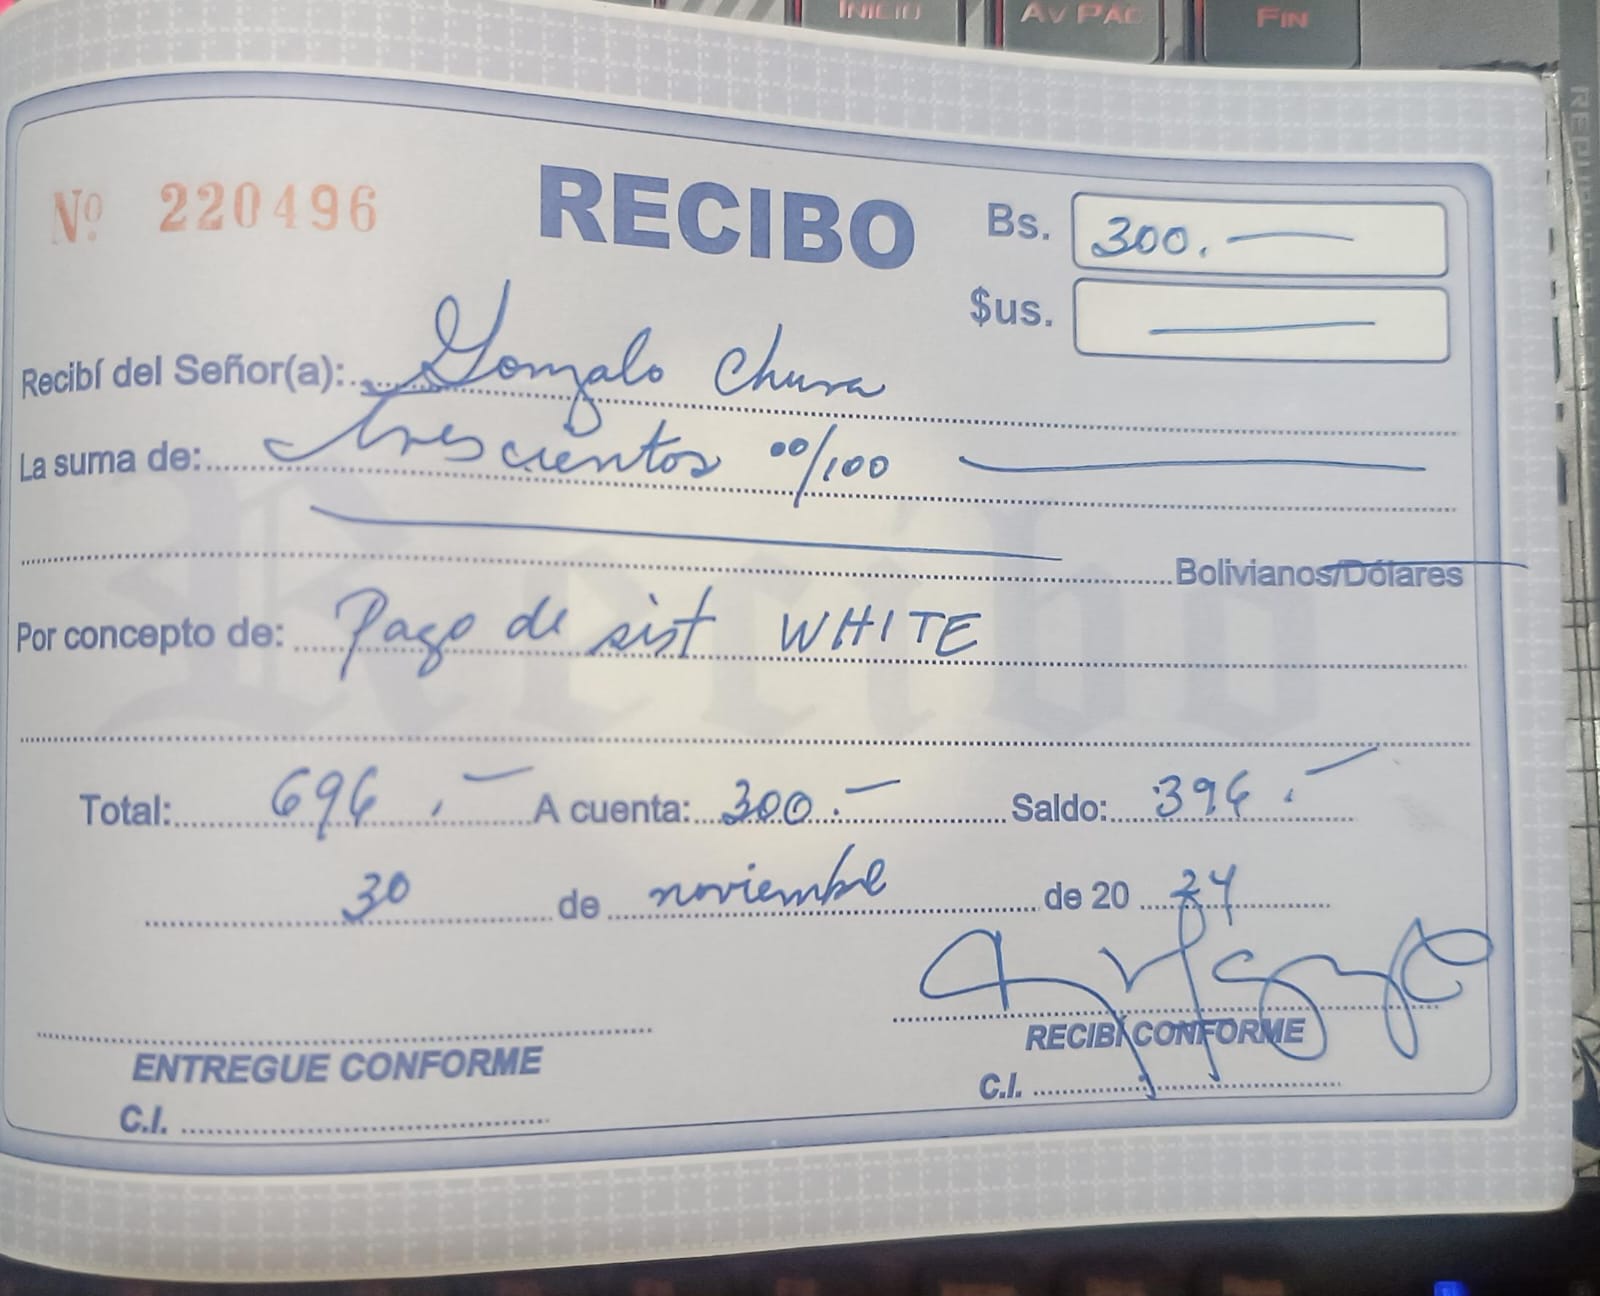 INICIO AV PÁG FIN
Nº 220496
RECIBO
Bs. 300.—
$us. —
Recibí del Señor(a): Gonzalo Chura
La suma de: trescientos 00/100
Bolivianos/Dólares
Por concepto de: Pago de sist WHITE
Total: 696.— A cuenta: 300.— Saldo: 396.—
30 de noviembre de 20 24
ENTREGUE CONFORME
C.I.
RECIBÍ CONFORME
C.I.